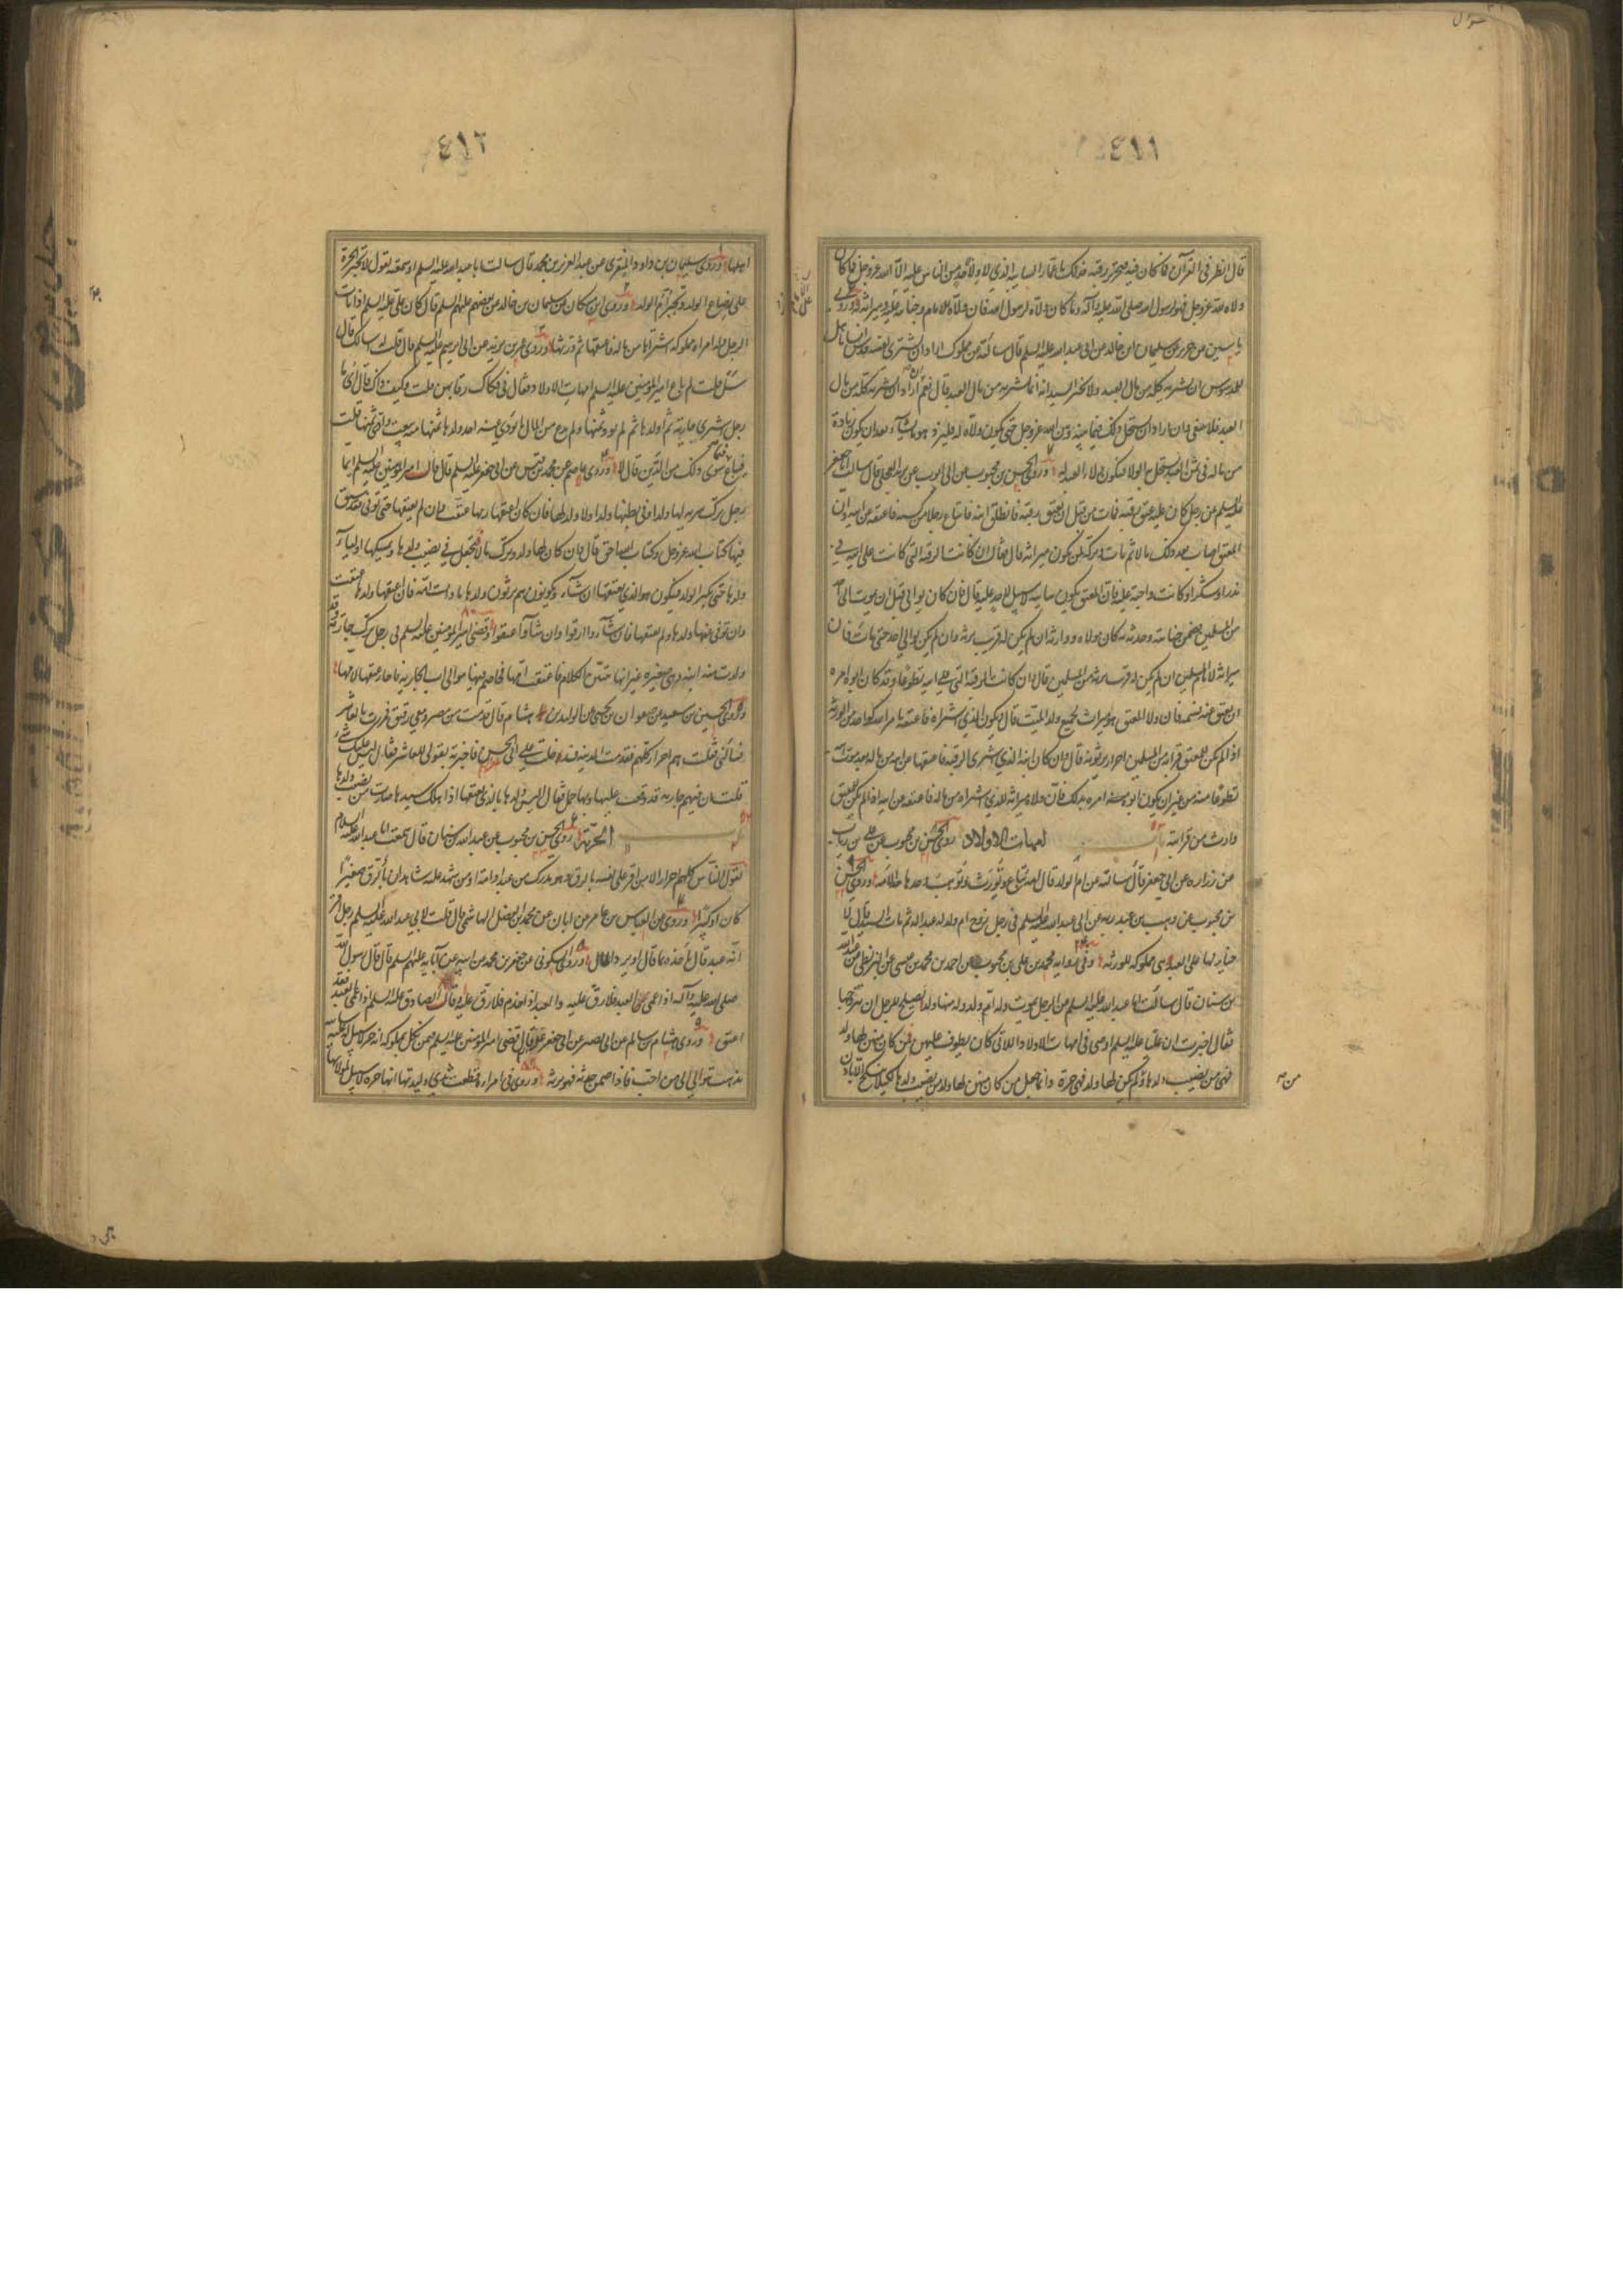 ٤١١
قال انظر فى القرآن فما كان فيه فتحرير رقبة فذلك يا عمار السايبة الذي لا ولاء لاحد من الناس عليه الا الله عز وجل فما كان
ولاءه لله عز وجل فهو لرسول الله صلى الله عليه وآله وما كان ولاءه لرسول الله فان ولاءه للامام وجنايته عليه وميراثه له وروى
ياسين عن حريز عن سليمان بن خالد عن ابى عبد الله عليه السلم قال سألته عن مملوك اراد ان يشترى نفسه فدس انسانا هل
للمدسوس ان يشتريه كله من مال العبد ولا يخبر السيد انه انما يشتريه من مال العبد قال نعم اراد ان يشتريه كله من مال
العبد فلا ينبغى وان اراد ان يستحل ذلك فيما بينه وبين الله عز وجل حتى يكون ولاءه له فليزد هو ما يشآء بعد ان يكون زيادة
من ماله فى ثمن العبد يستحل به الولا فيكون ولاء العبد له وروى الحسن بن محبوب عن ابى ايوب عن بريد العجلى قال سالت ابا جعفر
عليه السلم عن رجل كان عليه عتق رقبة فمات من قبل ان يعتق رقبة فانطلق ابنه فابتاع رجلا من كسبه فاعتقه عن ابيه وان
المعتق اصاب بعد ذلك مالا ثم مات وتركه لمن يكون ميراثه قال فقال ان كانت الرقبة التى كانت على ابيه فى
نذر او شكر او كانت واجبة عليه فان المعتق يكون سايبة لا سبيل لاحد عليه قال فان كان توالى قبل ان يموت الى احد
من المسلمين فضمن جنايته وحدثه كان مولاه ووارثه ان لم يكن له قريب يرثه وان لم يكن توالى احد حتى مات فان
ميراثه لامام المسلمين ان لم يكن له قريب يرثه من المسلمين قال وان كانت الرقبة التى على ابيه تطوعا وقد كان ابوه امره
ان يعتق عنه نسمة فان ولا المعتق هو ميراث لجميع ولد الميت قال ويكون الذي اشتراه فاعتقه بامر ابيه كواحد من الورثة
اذا لم يكن للمعتق قرابة من المسلمين احرار يرثونه قال وان كان ابنه الذي اشترى الرقبة فاعتقها عن ابيه من ماله بعد موت ابيه
تطوعا منه من غير ان يكون ابوه امره بذلك فان ولاءه وميراثه للذي اشتراه من ماله فاعتقه عن ابيه اذا لم يكن للمعتق
وارث من قرابته باب امهات الاولاد روى الحسن بن محبوب عن على بن رياب
عن زراره عن ابى جعفر قال سالته عن ام الولد قال امة تباع وتورث وتوهب وحدها حد الامة وروى الحسن
بن محبوب عن وهب بن عبد ربه عن ابى عبد الله عليه السلم فى رجل زوج ام ولد له عبدا له ثم مات السيد قال لا
خيار لها على العبد هى مملوكة للورثة وفى رواية محمد بن على بن محبوب عن احمد بن محمد بن عيسى عن البزنطى عن عبد الله
بن سنان قال سالت ابا عبد الله عليه السلم عن الرجل يموت وله ام ولد وله منها ولد أيصلح للرجل ان يتزوجها
فقال اخبرت ان عليا عليه السلم اوصى فى امهات الاولاد اللاتى كان يطوف عليهن فمن كان منهن لها ولد
فهى من نصيب ولدها ولم يكن لها ولد فهى حرة وانما جعل من كان منهن لها ولد من نصيب ولدها لكيلا تنكح الا باذن
٤١٢
اهلها وروى سليمان بن داود المنقرى عن عبد العزيز بن محمد قال سالت ابا عبد الله عليه السلم او سمعته يقول لا تجبر الحرة
على رضاع الولد وتجبر ام الولد وروى ابن مسكان عن سليمان بن خالد عن بعضهم عليهم السلم قال كان على عليه السلم اذا مات
الرجل وله امراة مملوكة اشتراها من ماله فاعتقها ثم ورثها وروى عمر بن يزيد عن ابى ابراهيم عليه السلم قال قلت له اسالك قال
سل قلت لم باع امير المؤمنين عليه السلم امهات الاولاد فقال فى فكاك رقابهن قلت وكيف ذاك قال ايما
رجل اشترى جارية ثم اولدها ثم لم يود ثمنها ولم يدع من المال ما يؤدى عنه اخذ ولدها منها وبيعت وادى ثمنها قلت
فيباع فيما سوى ذلك من الدين قال لا وروى عاصم عن محمد بن قيس عن ابى جعفر عليه السلم قال قال امير المؤمنين عليه السلم ايما
رجل ترك سرية لها ولد او فى بطنها ولد او لا ولد لها فان كان اعتقها ربها عتقت وان لم يعتقها حتى توفى فقد سبق
فيها كتاب الله عز وجل وكتاب الله احق قال وان كان لها ولد وترك مالا تجعل فى نصيب ولدها ويمسكها اوليآء
ولدها حتى يكبر الولد فيكون هو الذي يعتقها ان شآء ويكونون هم يرثون ولدها ما دامت امة فان اعتقها ولدها عتقت
وان توفى عنها ولدها ولم يعتقها فان شآءوا ارقوا وان شآءوا اعتقوا وقضى امير المؤمنين عليه السلم فى رجل ترك جارية وقد
ولدت منه ابنة وهى صغيرة غير انها تبين الكلام فاعتقت امها فخاصم فيها موالى اب الجارية فاجاز عتقها لامها
وروى الحسين بن سعيد عن صفوان بن يحيى عن الوليد بن هشام قال قدمت من مصر ومعى رقيق فمررت بالعاشر
فسألنى فقلت هم احرار كلهم فقدمت المدينة فدخلت على ابى الحسن فاخبرته بقولى للعاشر فقال ليس عليك شئ
قلت ان فيهم جارية قد وقعت عليها وبها حمل فقال أليس ولدها بالذى يعتقها اذا هلك سيدها صارت من نصيب ولدها
باب الحرية روى الحسن بن محبوب عن عبد الله بن سنان قال سمعت ابا عبد الله عليه السلام
يقول الناس كلهم احرار الا من اقر على نفسه بالرق وهو مدرك من عبد او امة او من شهد عليه شاهدان بالرق صغيرا
كان او كبيرا وروى عن العباس بن عامر عن ابان عن محمد بن الفضل الهاشمى قال قلت لابى عبد الله عليه السلم رجل اقر
انه عبد قال يأخذه بما قال او يرد المال وروى السكونى عن جعفر بن محمد عن ابيه عن آبايه عليهم السلم قال قال رسول الله
صلى الله عليه وآله اذا عمى العبد فلا رق عليه والعبد اذا جذم فلا رق عليه وقال الصادق عليه السلم اذا عمى العبد فقد
اعتق وروى هشام بن سالم عن ابى بصير عن ابى جعفر عليه السلم قال قضى امير المؤمنين عليه السلم فيمن نكل بمملوكه انه حر لا سبيل له عليه سايبة
يذهب يتوالى الى من احب فاذا ضمن حدثه فهو يرثه وروى فى امراة قطعت ثدى وليدتها انها حرة لا سبيل لمولاتها